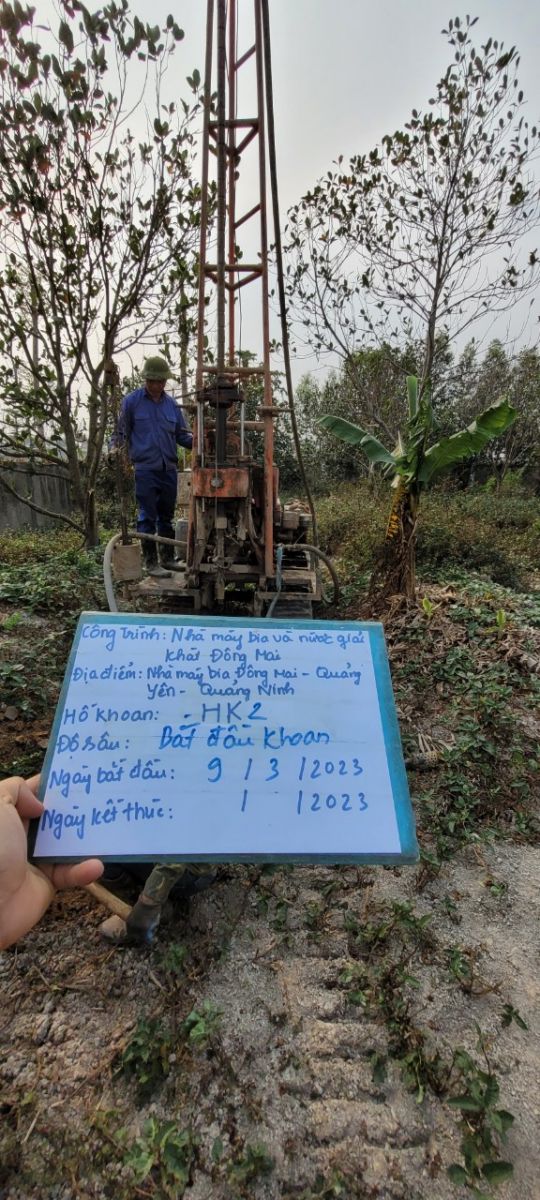 Công Trình: Nhà máy bia và nước giải
Khát Đông Mai
Địa điểm: Nhà máy bia Đông Mai - Quảng
Yên - Quảng Ninh
Hố khoan: - HK2
Độ sâu: Bắt đầu khoan
Ngày bắt đầu: 9 / 3 / 2023
Ngày kết thúc: / / 2023